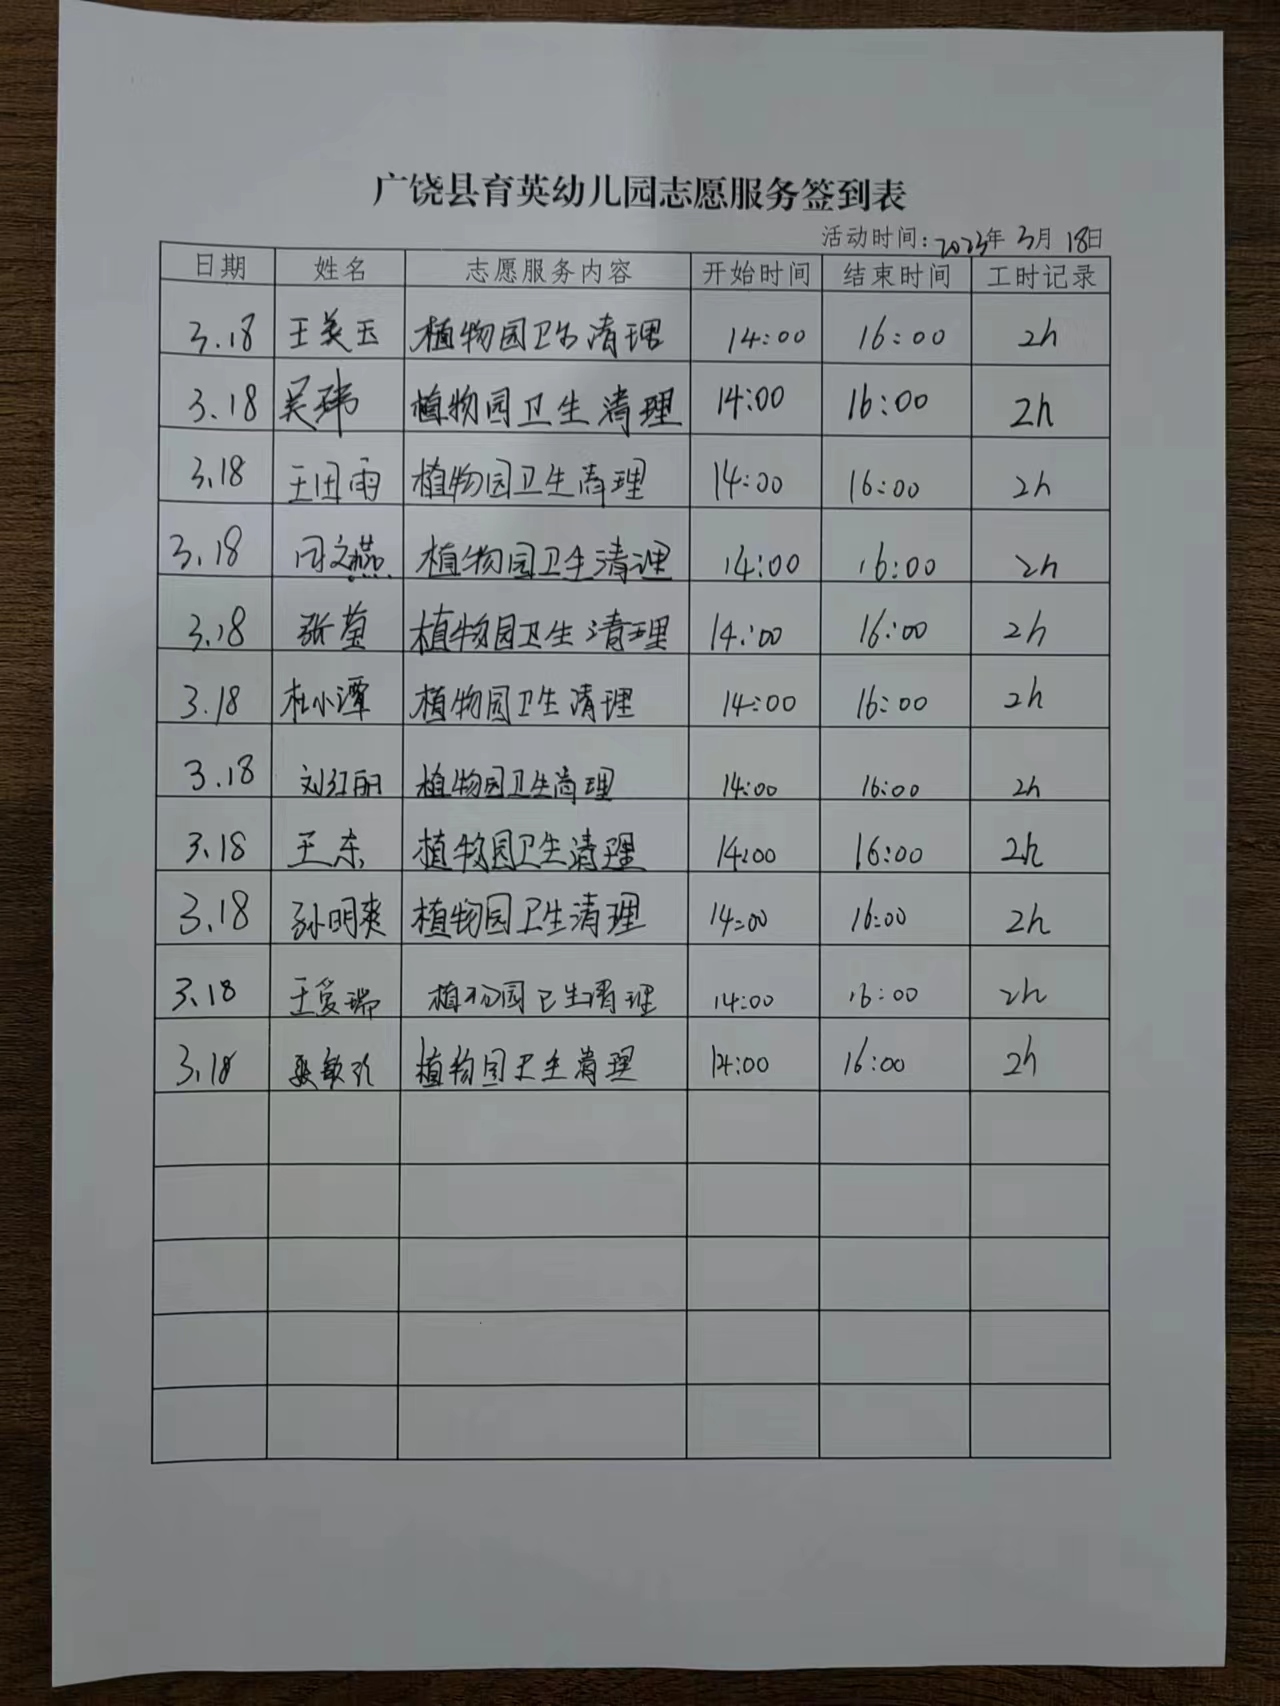 广饶县育英幼儿园志愿服务签到表
活动时间：2023年 3月 18日
日期 姓名 志愿服务内容 开始时间 结束时间 工时记录
3.18 王美玉 植物园卫生清理 14:00 16:00 2h
3.18 吴玮 植物园卫生清理 14:00 16:00 2h
3.18 王田雨 植物园卫生清理 14:00 16:00 2h
3.18 闫文燕 植物园卫生清理 14:00 16:00 2h
3.18 张莹 植物园卫生清理 14:00 16:00 2h
3.18 杜小潭 植物园卫生清理 14:00 16:00 2h
3.18 刘红丽 植物园卫生清理 14:00 16:00 2h
3.18 王东 植物园卫生清理 14:00 16:00 2h
3.18 孙明爽 植物园卫生清理 14:00 16:00 2h
3.18 王爱瑞 植物园卫生清理 14:00 16:00 2h
3.18 植物园卫生清理 14:00 16:00 2h